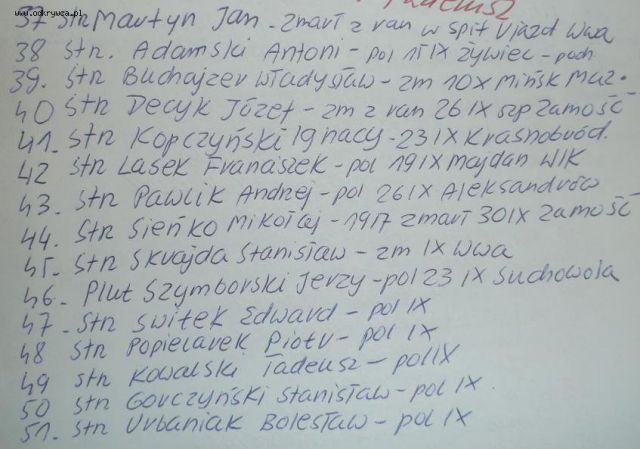 www.odkrywca.pl
Tadeusz
37 Str Martyn Jan - zmarł z ran w szpit Ujazd Wwa
38 Str. Adamski Antoni - pol 1 IX Żywiec - poch
39. Str Buchajzer Władysław - zm 10 X Mińsk Maz.
40 Str Decyk Józef - zm z ran 26 IX szp Zamość
41. Str Kopczyński Ignacy - 23 IX Krasnobród.
42 Str Lasek Franciszek - pol 19 IX Majdan Wlk
43. Str Pawlik Andrzej - pol 26 IX Aleksandrów
44. Str Sieńko Mikołaj - 1917 zmarł 30 IX Zamość
45. Str Skrajda Stanisław - zm IX Wwa
46. Plut Szymborski Jerzy - pol 23 IX Suchowola
47. Str Switek Edward - pol IX
48 Str Popielarek Piotr - pol IX
49 Str Kowalski Tadeusz - pol IX
50 Str Gorczyński Stanisław - pol IX.
51. Str Urbaniak Bolesław - pol IX